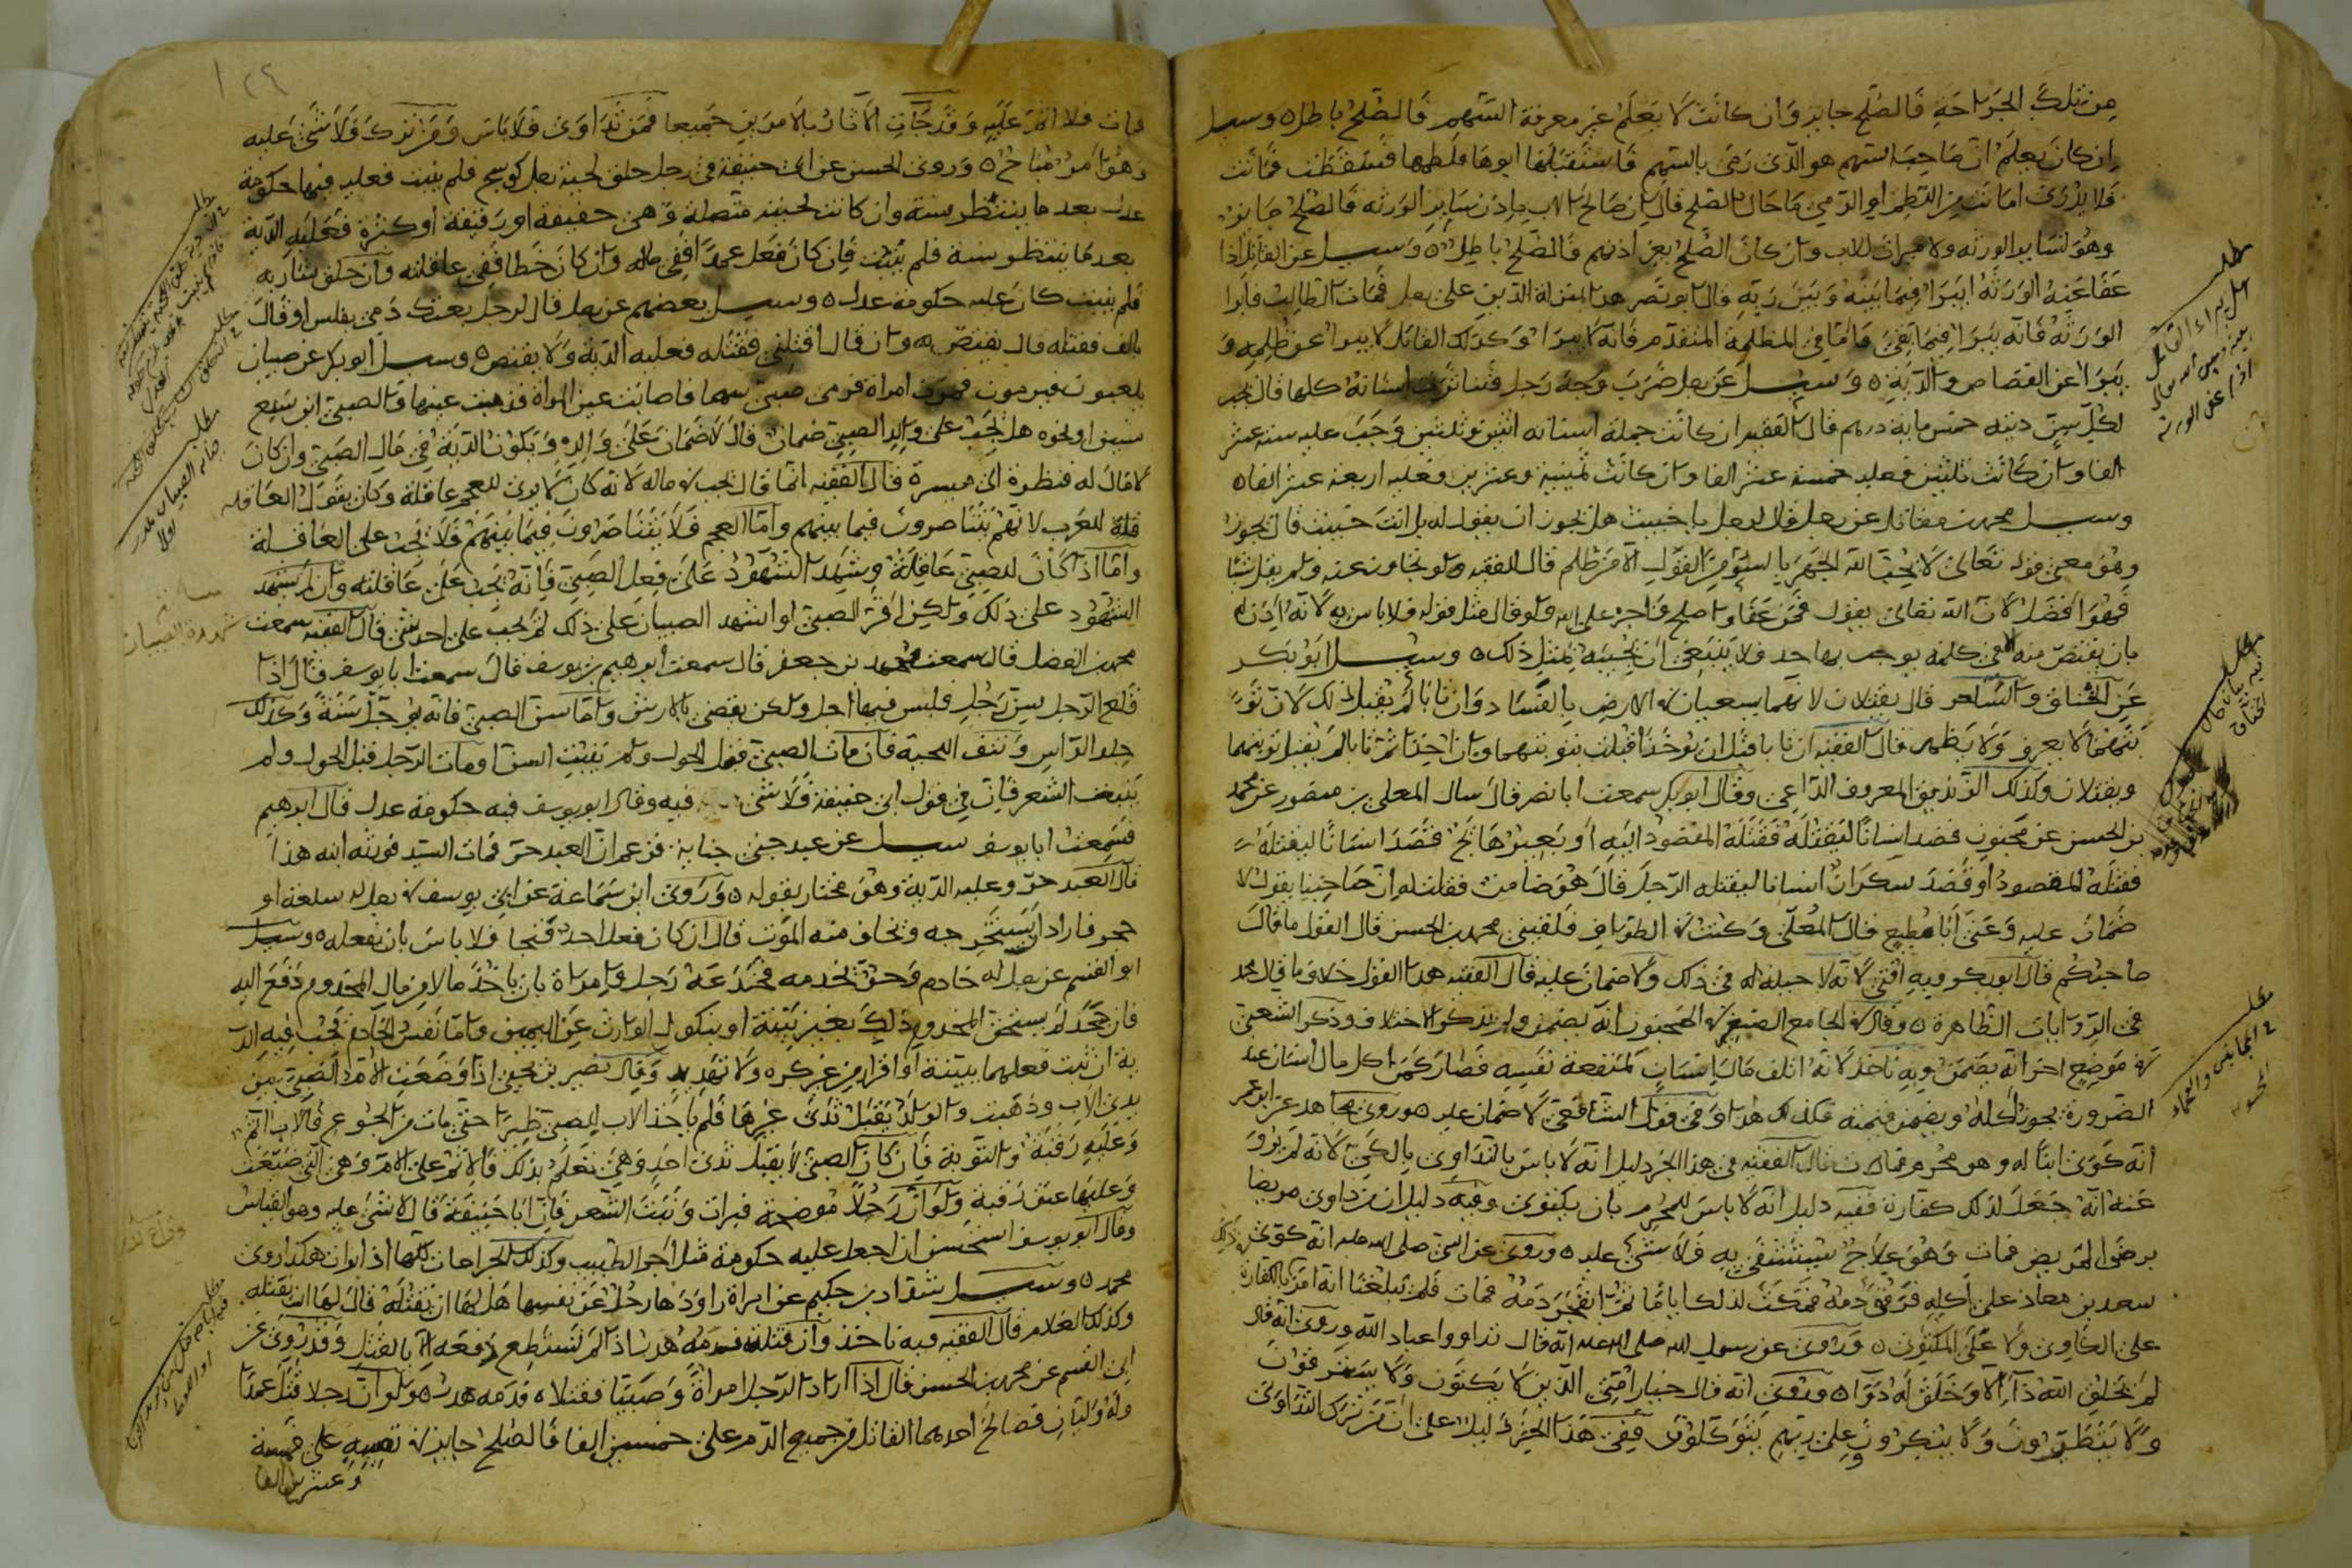 من تلك الجراحة فالصلح جايز وان كانت لا يعلم غير معرفة السهم فالصلح باطل ٥ وسيل
ان كان يعلم ان صاحب السهم هو الذى رمى بالسهم فاستقبلها ابوها فلطمها فسقطت فماتت
فلا يدرى اماتت من اللطم او الرمي ما حال الصلح قال ان صالح الاب باذن ساير الورثه فالصلح جايز
وهو لساير الورثه ولا ميراث للاب وان كان الصلح بغير اذنهم فالصلح باطل ٥ وسيل عن القاتل اذا
عفا عنه الورثة ايبرا فيما بينه وبين ربه قال ابو نصر هذا بمنزلة الدين على رجل فمات الطالب فابرا
الورثة فانه يبرا فيما بقى فاما في المظلمة المتقدم فانه لا يبرا وكذلك القاتل لا يبرا عن ظلمه و
يبرا عن القصاص والدية ٥ وسيل عن رجل ضرب وجه رجل فتناثرت اسنانه كلها قال يجب
لكل سن ديته خمس ماية درهم قال الفقيه ان كانت جملة اسنانه اثنين وثلثين وجب عليه ستة عشر
الفا وان كانت ثلثين فعليه خمسة عشر الفا وان كانت ثمنية وعشرين فعليه اربعة عشر الفا ٥
وسيل محمد بن مقاتل عن رجل قال لرجل يا خبيث هل يجوز ان يقول له بل انت خبيث قال يجوز
وهو معنى قوله تعالى لا يحب الله الجهر بالسوء من القول الا من ظلم قال الفقيه ولو تجاوز عنه ولم يقل شيا
فهو افضل لان الله تعالى يقول فمن عفا واصلح فاجره على الله ولو قال مثل قوله فلا باس به لانه اذن له
بان يقتص منه في كلمة يوجب بها حد ولا ينبغى ان يجيبه بمثل ذلك ٥ وسيل ابو بكر
عن الخناق والساحر قال يقتلان لانهما يسعيان في الارض بالفساد وان تابا لم يقبل ذلك لان
ويقتلان وكذلك الزنديق المعروف الداعى وقال ابو بكر سمعت ابا نصر قال سال المعلى بن منصور عن محمد
بن الحسن عن مجنون قصد انسانا ليقتله فقتله المقصود اليه
فقتله المقصود او قصد سكران انسانا ليقتله الرجل قال هو ضامن فقلت له ان صاحبنا يقول لا
ضمان عليه وعنى ابا مطيع قال المعلى وكنت في الطواف فلقينى محمد بن الحسن قال القول ما قال
صاحبكم قال ابو بكر وبه افتى لانه لا حيلة له في ذلك ولا ضمان عليه قال الفقيه هذا القول خلاف ما قال محمد
فى الروايات الظاهرة ٥ وقال في الجامع الصغير في المجنون انه يضمن ولم يذكر الاختلاف وذكر الشعبي
في موضع اخر انه يضمن وبه ناخذ لانه اتلف مال انسان لمنفعة نفسه فصار كمن اكل مال انسان عند
الضرورة يجوز اكله ويضمن قيمته فكذلك هذا وفى قول الشافعي لا ضمان عليه ٥ وروى مجاهد عن ابن عمر
انه كوى ابنا له وهو محرم قال الفقيه في هذا الخبر دليل انه لا باس بالتداوى بالكي لانه لم يرو
عنه انه جعل لذلك كفارة ففيه دليل انه لا باس للمحرم بان يكتوى وفيه دليل ان من داوى مريضا
برضى المريض فمات وهو علاج يستشفى به فلا شىء عليه ٥ وروى عن النبى صلى الله عليه انه كوى
سعد بن معاذ على اكله فرقى دمه فمكث لذلك اياما ثم انفجر دمه فمات فلم يبلغنا انه امر بالكفارة
على الكاوى ولا على المكتوى ٥ وروى عن رسول الله صلى الله عليه انه قال تداووا عباد الله وروى انه قال
لم يخلق الله دا الا وخلق له دوا ٥ وروى انه قال خيار امتى الذين لا يكتوون ولا يسترقون
ولا يتطيرون ولا يبتكرون وعلى ربهم يتوكلون ففى هذا الخبر دليل على ان من ترك التداوى
١٢٦
فمات فلا اثم عليه وقد جات الاثار بالامرين جميعا فمن تداوى فلا باس ومن ترك فلا شئ عليه
وهو امر مباح ٥ وروى الحسن عن ابي حنيفة في رجل حلق لحية رجل كوسج فلم ينبت فعليه فيها حكومة
عدل بعد ما ينتظر سنة وان كانت لحيته متصلة وهى خفيفة او رقيقة او كثرة فعليه الدية
بعد ما ينتظر سنة فلم ينبت فان كان فعل عمدا ففى ماله وان كان خطا ففى عاقلته وان حلق شاربه
فلم ينبت كان عليه حكومة عدل ٥ وسيل بعضهم عن رجل قال لرجل بعتك دمى بفلس او قال
بالف فقتله قال يقتص به وان قال اقتلنى فقتله فعليه الدية ولا يقتص ٥ وسيل ابو بكر عن صبيان
يلعبون فيرمون فمرت امراة فرمى صبى سهما فاصابت عين المراة فذهبت عينها والصبى ابن تسع
سنين او نحوه هل يجب على والد الصبي ضمان قال لا ضمان على والده ويكون الدية في مال الصبى وان كان
لا مال له فنظرة الى ميسرة قال الفقيه انما قال يجب في ماله لانه كان لا يرى للعجم عاقلة وكان يقول العاقله
للعرب لانهم يتناصرون فيما بينهم واما العجم فلا يتناصرون فيما بينهم فلا يجب على العاقلة
واما اذا كان للصبى عاقلة وشهد الشهود على فعل الصبى فانه يجب على عاقلته وان لم يشهد
الشهود على ذلك ولكن اقر الصبى او اشهد الصبيان على ذلك لم يجب على احد شئ قال الفقيه سمعت
محمد بن الفضل قال سمعت محمد بن جعفر قال سمعت ابرهيم بن يوسف قال سمعت ابا يوسف قال اذا
قلع الرجل سن رجل فليس فيها اجل ولكن يقضى بالارش واما سن الصبى فانه يوجل سنة وكذلك
حلق الراس ونتف اللحية فان مات الصبى قبل الحول ولم ينبت السن او مات الرجل قبل الحول ولم
ينبت الشعر فان في قول ابى حنيفة فلا شى فيه وقال ابو يوسف فيه حكومة عدل قال ابرهيم
فسمعت ابا يوسف سيل عن عبد جنى جناية فزعم ان العبد حر فمات السيد فورثه ابنه هذا
قال العبد حر وعليه الدية وهو مختار بقوله ٥ وروى ابن سماعة عن ابى يوسف في رجل له سلعة او
حجر فاراد ان يستخرجه ويخاف منه الموت قال ان كان فعل احد فنجا فلا باس بان يفعله ٥ وسيل
ابو القسم عن رجل له خادم وحق بخدمه فخدعه رجل وامراة بان ياخذ مالا من مال المخدوم دفع اليه
فان جحد لم يستحق المخدوم ذلك بغير بينة او بنكول الوارث عن اليمين واما نفس الخادم فيجب فيه الد
ية ان ثبت فعلهما ببينة او اقرار من غير كره ولا تهديد وقال نصير بن يحيى اذا وضعت الام الصبى بين
يدى الاب وذهبت والولد يقبل ثدى غيرها فلم ياخذ الاب للصبى ظيرا حتى مات من الجوع فالاب اثم
وعليه رقبة والتوبة فان كان الصبى لا يقبل ثدى احد وهى تعلم بذلك فالاثم على الام وهى التى ضيعت
وعليها عتق رقبة ولو ان رجلا موضحة فبرات ونبت الشعر فان ابا حنيفة قال لا شى عليه وهو القياس
وقال ابو يوسف استحسن ان اجعل عليه حكومة مثل اجر الطبيب وكذلك الجراحات كلها اذا برات هكذا روى
محمد ٥ وسيل شداد بن حكيم عن امراة راودها رجل عن نفسها هل لها ان تقتله قال لها ان تقتله
وكذلك الغلام قال الفقيه وبه ناخذ وان قتلته فدمه هدر اذا لم تستطع دفعه الا بالقتل وقد روى عن
ابن القسم عن محمد بن الحسن قال اذا اراد الرجل امراة وصبيا فقتلاه فدمه هدر ٥ ولو ان رجلا قتل عمدا
وله وليان فصالح احدهما القاتل من جميع الدم على خمسين الفا فالصلح جايز في نصيبه على خمسة
وعشرين الفا